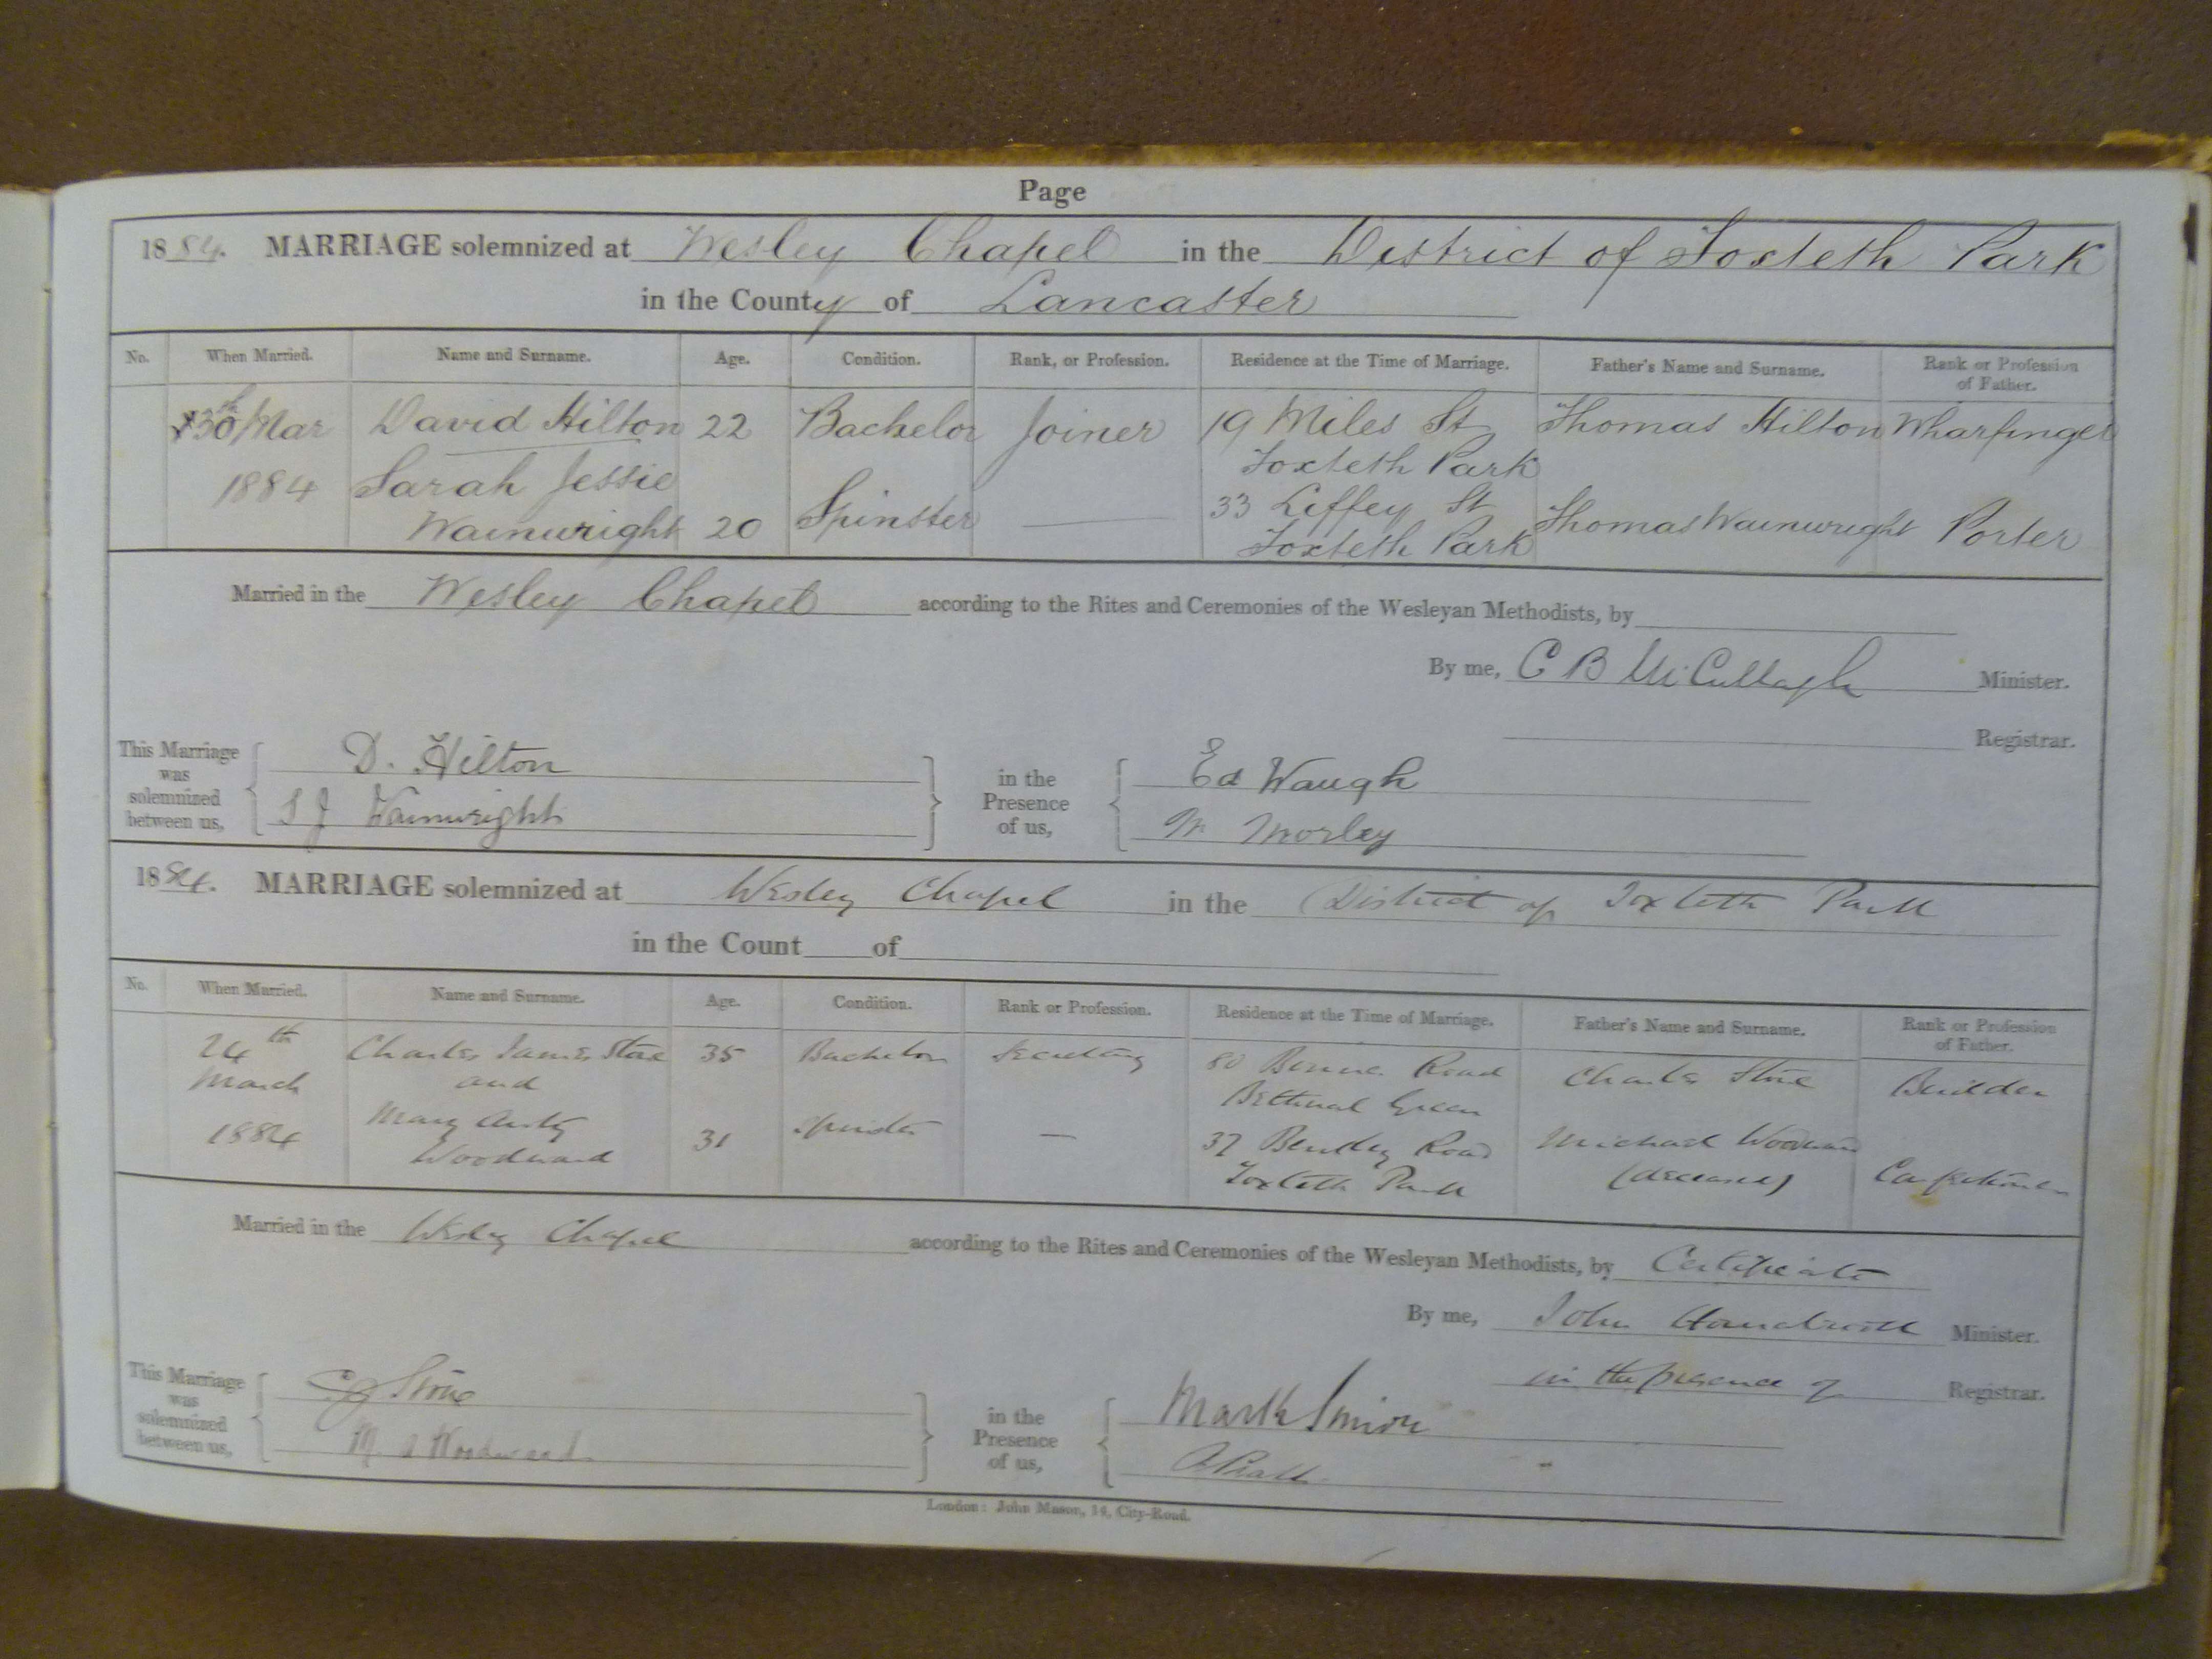 Page
1884. MARRIAGE solemnized at Wesley Chapel in the District of Toxteth Park
in the County of Lancaster
No. When Married. Name and Surname. Age. Condition. Rank, or Profession. Residence at the Time of Marriage. Father's Name and Surname. Rank or Profession of Father.
30th Mar David Hilton 22 Bachelor Joiner 19 Miles St Thomas Hilton Wharfinger
Toxteth Park
1884 Sarah Jessie
Wainwright 20 Spinster 33 Liffey St Thomas Wainwright Porter
Toxteth Park
Married in the Wesley Chapel according to the Rites and Ceremonies of the Wesleyan Methodists, by
By me, C B McCullagh Minister.
Registrar.
This Marriage was solemnized between us, D. Hilton in the Presence of us, Ed Waugh
S J Wainwright M Morley
1884. MARRIAGE solemnized at Wesley Chapel in the District of Toxteth Park
in the Count of
No. When Married. Name and Surname. Age. Condition. Rank or Profession. Residence at the Time of Marriage. Father's Name and Surname. Rank or Profession of Father.
24th Charles James Stone 35 Bachelor Secretary 80 Road Charles Stone Builder
March and Bethnal Green
1884 Mary 31 Spinster — 37 Bentley Road Michael Woodward
Woodward Toxteth Park (deceased)
Married in the Wesley Chapel according to the Rites and Ceremonies of the Wesleyan Methodists, by Certificate
By me, John Minister.
in the presence of Registrar.
This Marriage was solemnized between us, C J Stone in the Presence of us, Mark
M. A Woodward
London: John Mason, 14, City-Road.